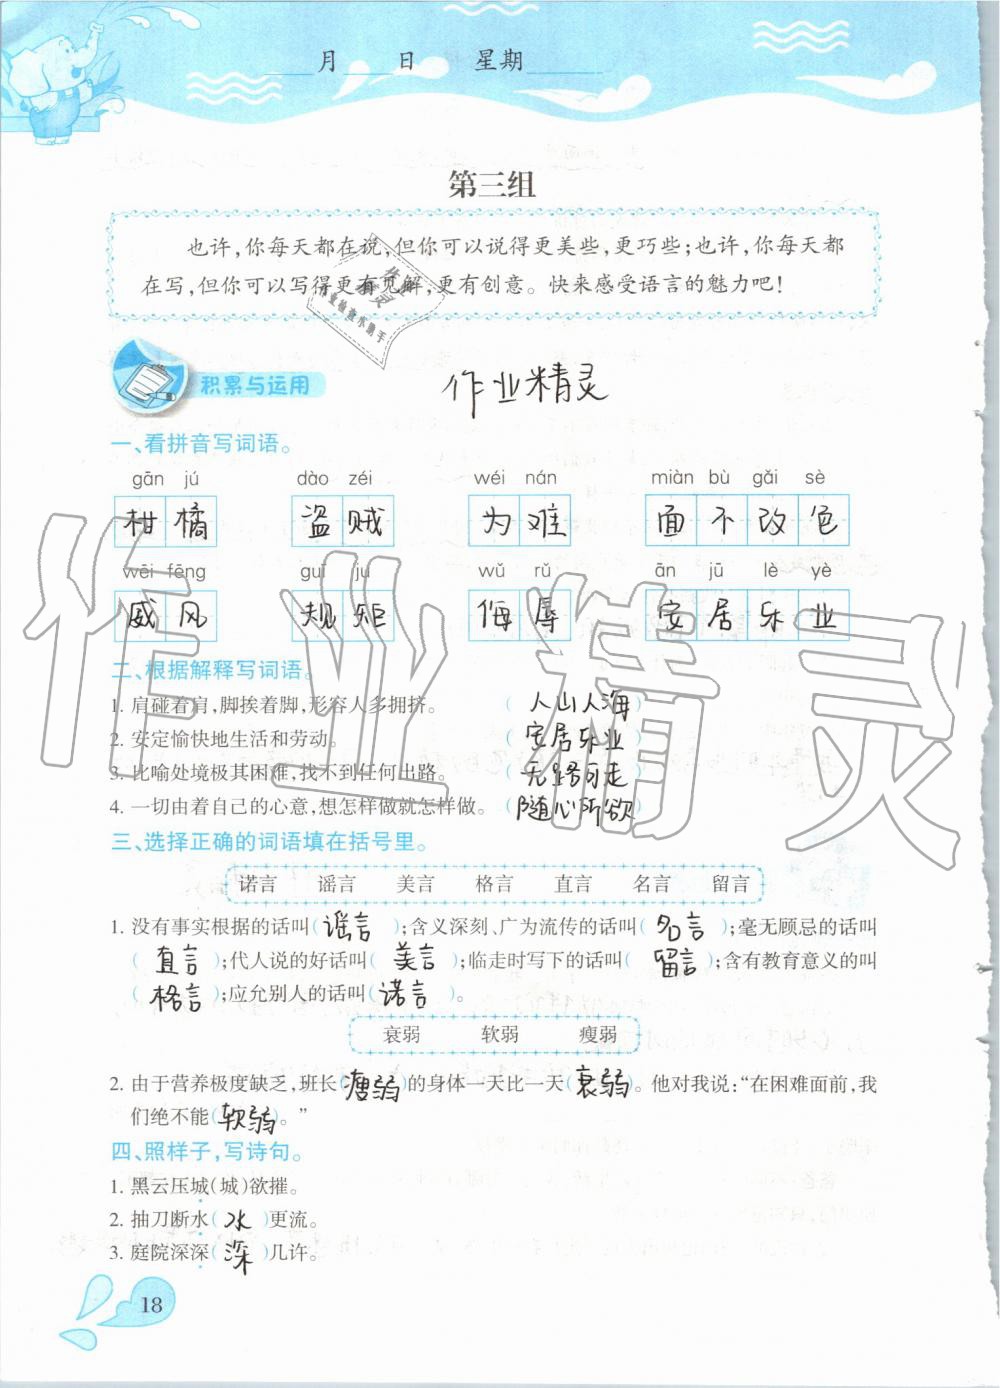 月 日 星期
第三组
也许,你每天都在说,但你可以说得更美些,更巧些;也许,你每天都
在写,但你可以写得更有见解,更有创意。快来感受语言的魅力吧!
积累与运用
作业精灵
一、看拼音写词语。
gān jú dào zéi wéi nán miàn bù gǎi sè
柑橘 盗贼 为难 面不改色
wēi fēng guī ju wǔ rǔ ān jū lè yè
威风 规矩 侮辱 安居乐业
二、根据解释写词语。
1. 肩碰着肩,脚挨着脚,形容人多拥挤。 (人山人海
2. 安定愉快地生活和劳动。 (安居乐业
3. 比喻处境极其困难,找不到任何出路。 (无路可走
4. 一切由着自己的心意,想怎样做就怎样做。 (随心所欲
三、选择正确的词语填在括号里。
诺言 谣言 美言 格言 直言 名言 留言
1. 没有事实根据的话叫(谣言);含义深刻、广为流传的话叫(名言);毫无顾忌的话叫
(直言);代人说的好话叫(美言);临走时写下的话叫(留言);含有教育意义的叫
(格言);应允别人的话叫(诺言)。
衰弱 软弱 瘦弱
2. 由于营养极度缺乏,班长( 弱)的身体一天比一天(衰弱)。他对我说:“在困难面前,我
们绝不能(软弱)。”
四、照样子,写诗句。
1. 黑云压城(城)欲摧。
2. 抽刀断水(水)更流。
3. 庭院深深(深)几许。
18
作业精灵